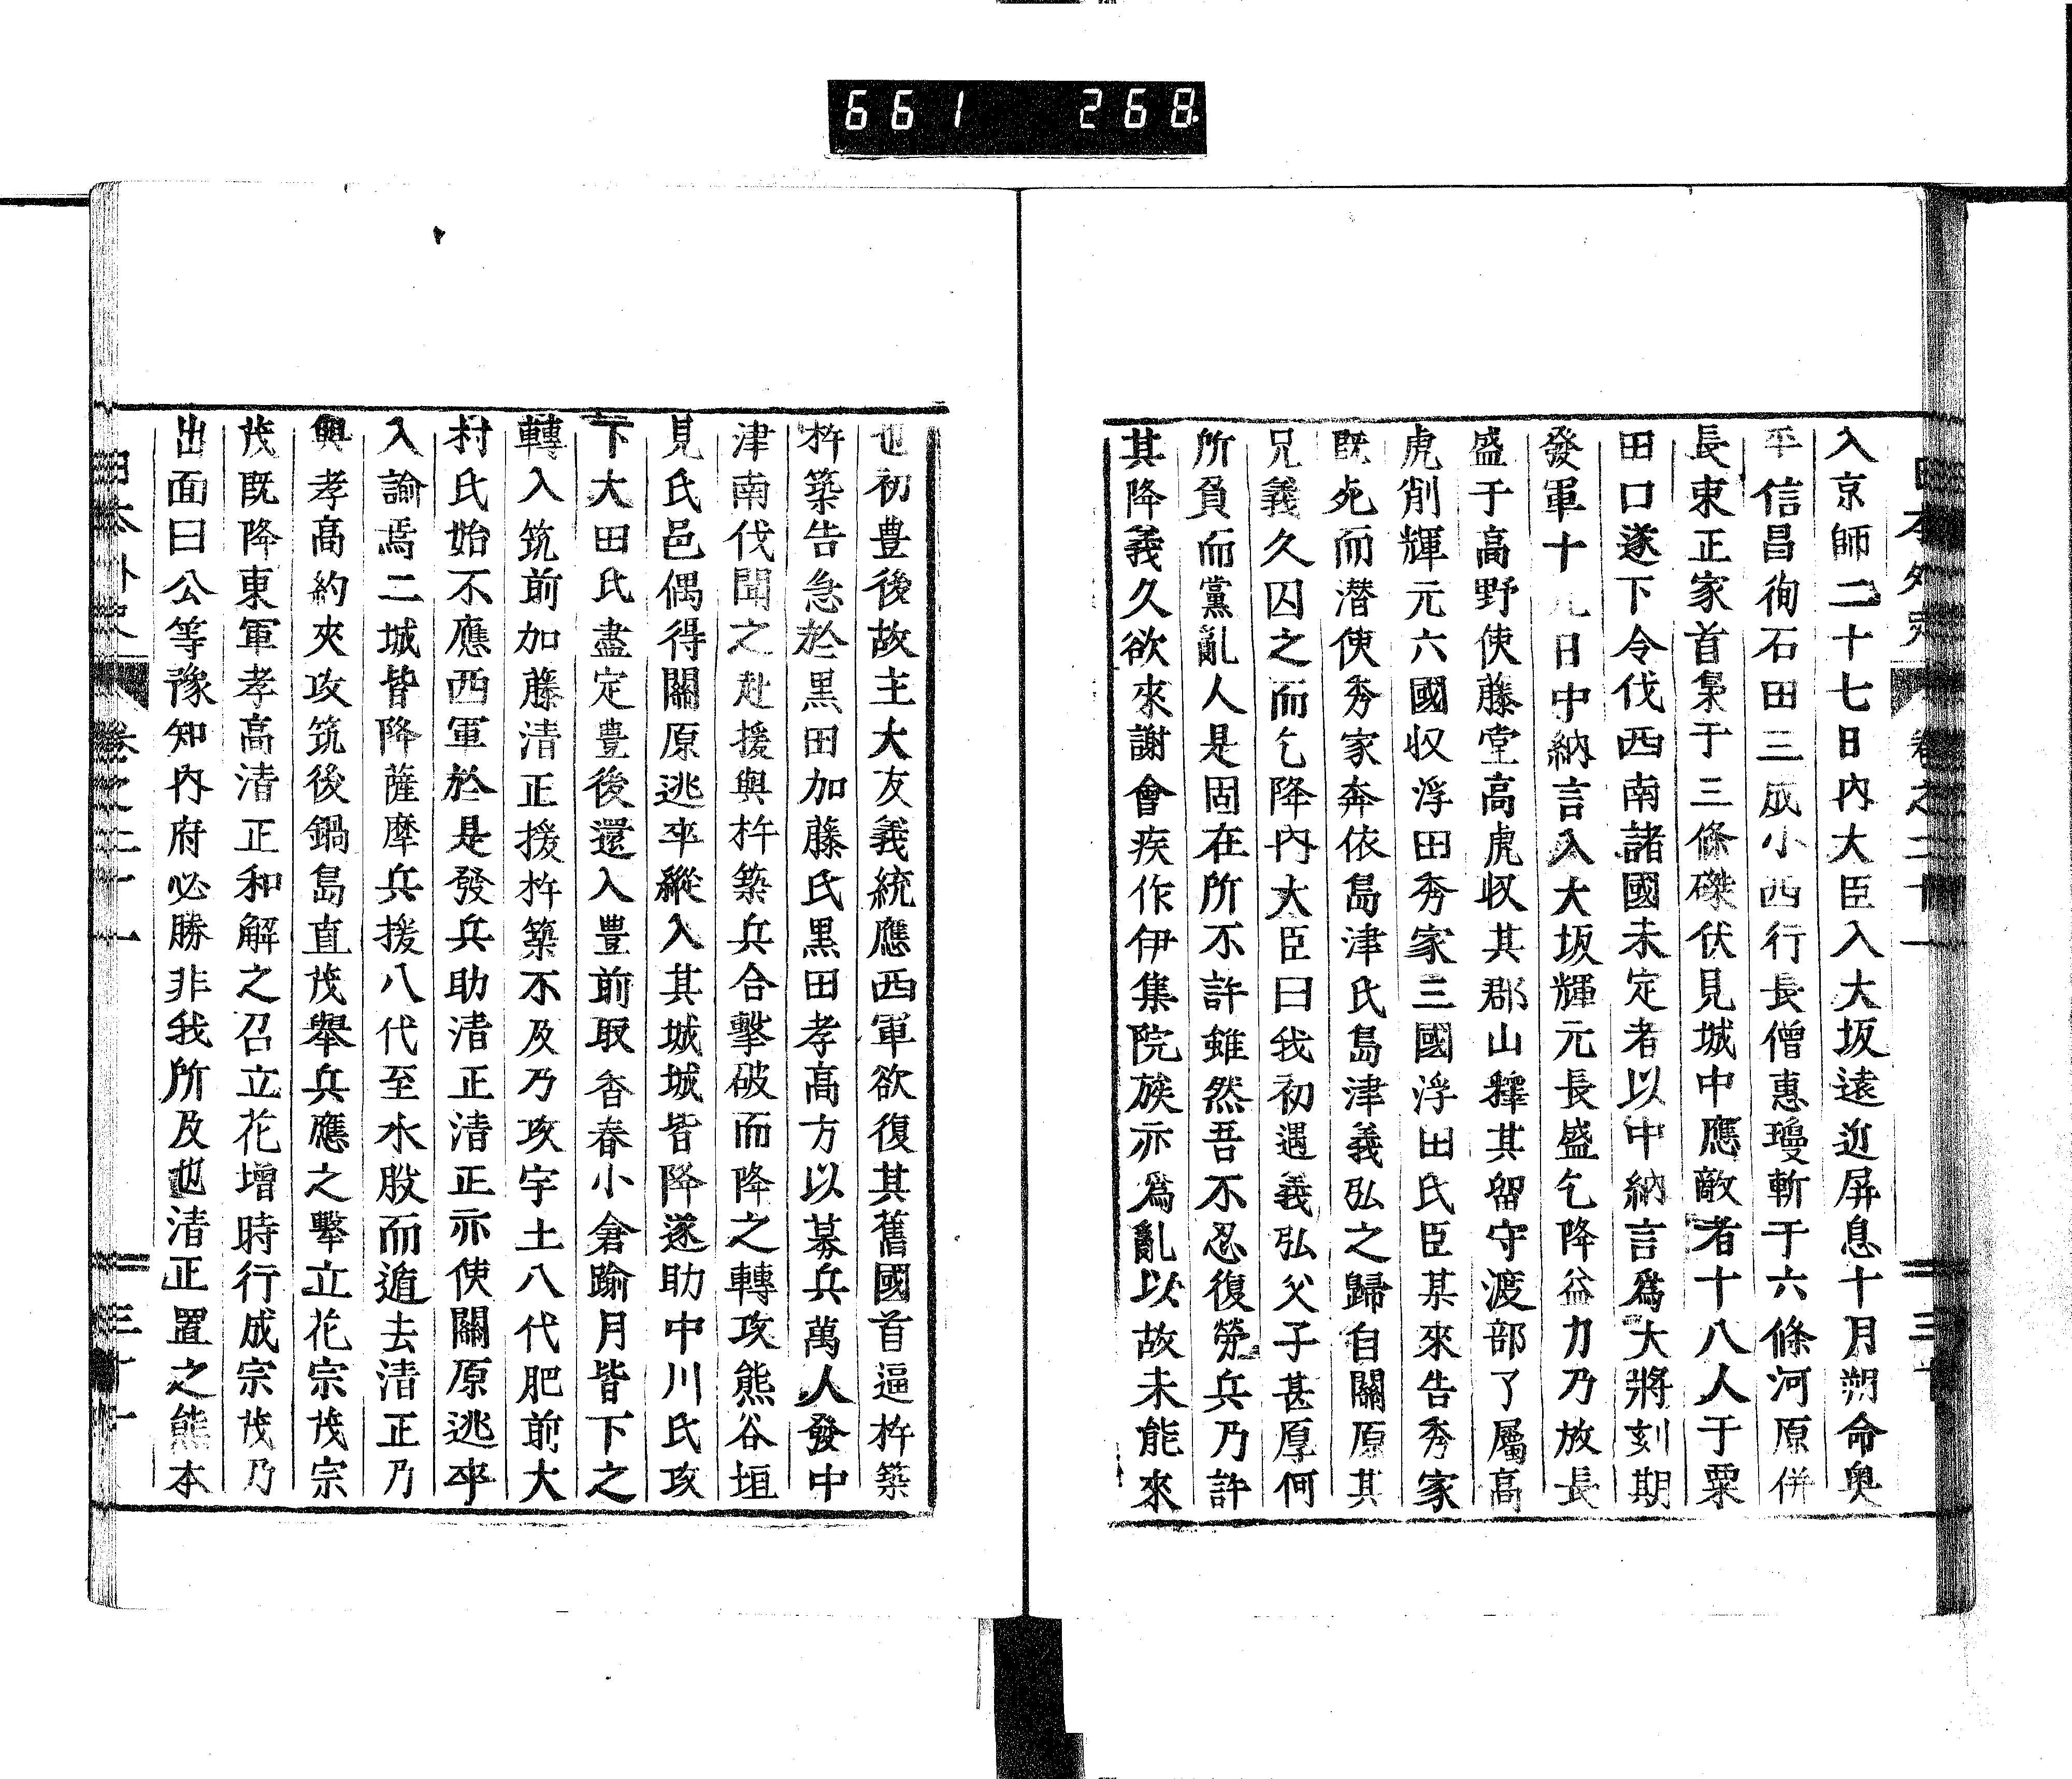 661 268
日本外史 卷之二十一 三十
入京師二十七日內大臣入大坂遠近屏息十月朔命奥
平信昌徇石田三成小西行長僧惠瓊斬于六條河原併
長束正家首梟于三條磔伏見城中應敵者十八人于粟
田口遂下令伐西南諸國未定者以中納言爲大將刻期
發軍十九日中納言入大坂輝元長盛乞降益力乃放長
盛于高野使藤堂高虎収其郡山釋其留守渡部了屬高
虎削輝元六國収浮田秀家三國浮田氏臣某來告秀家
既死而潜使秀家奔依島津氏島津義弘之歸自關原其
兄義久囚之而乞降內大臣曰我初遇義弘父子甚厚何
所負而黨亂人是固在所不許雖然吾不忍復勞兵乃許
其降義久欲來謝會疾作伊集院族亦爲亂以故未能來
也初豊後故主大友義統應西軍欲復其舊國首逼杵築
杵築告急於黒田加藤氏黒田孝高方以募兵萬人發中
津南伐聞之赴援與杵築兵合擊破而降之轉攻熊谷垣
見氏邑偶得關原逃卒縱入其城城皆降遂助中川氏攻
下大田氏盡定豊後還入豊前取香春小倉踰月皆下之
轉入筑前加藤清正援杵築不及乃攻宇土八代肥前大
村氏始不應西軍於是發兵助淸正淸正亦使關原逃卒
入諭焉二城皆降薩摩兵援八代至水股而遁去清正乃
與孝高約夾攻筑後鍋島直茂舉兵應之擊立花宗茂宗
茂既降東軍孝高淸正和解之召立花增時行成宗茂乃
出面曰公等豫知內府必勝非我所及也淸正置之熊本
日本外史 卷之二十一 三十一